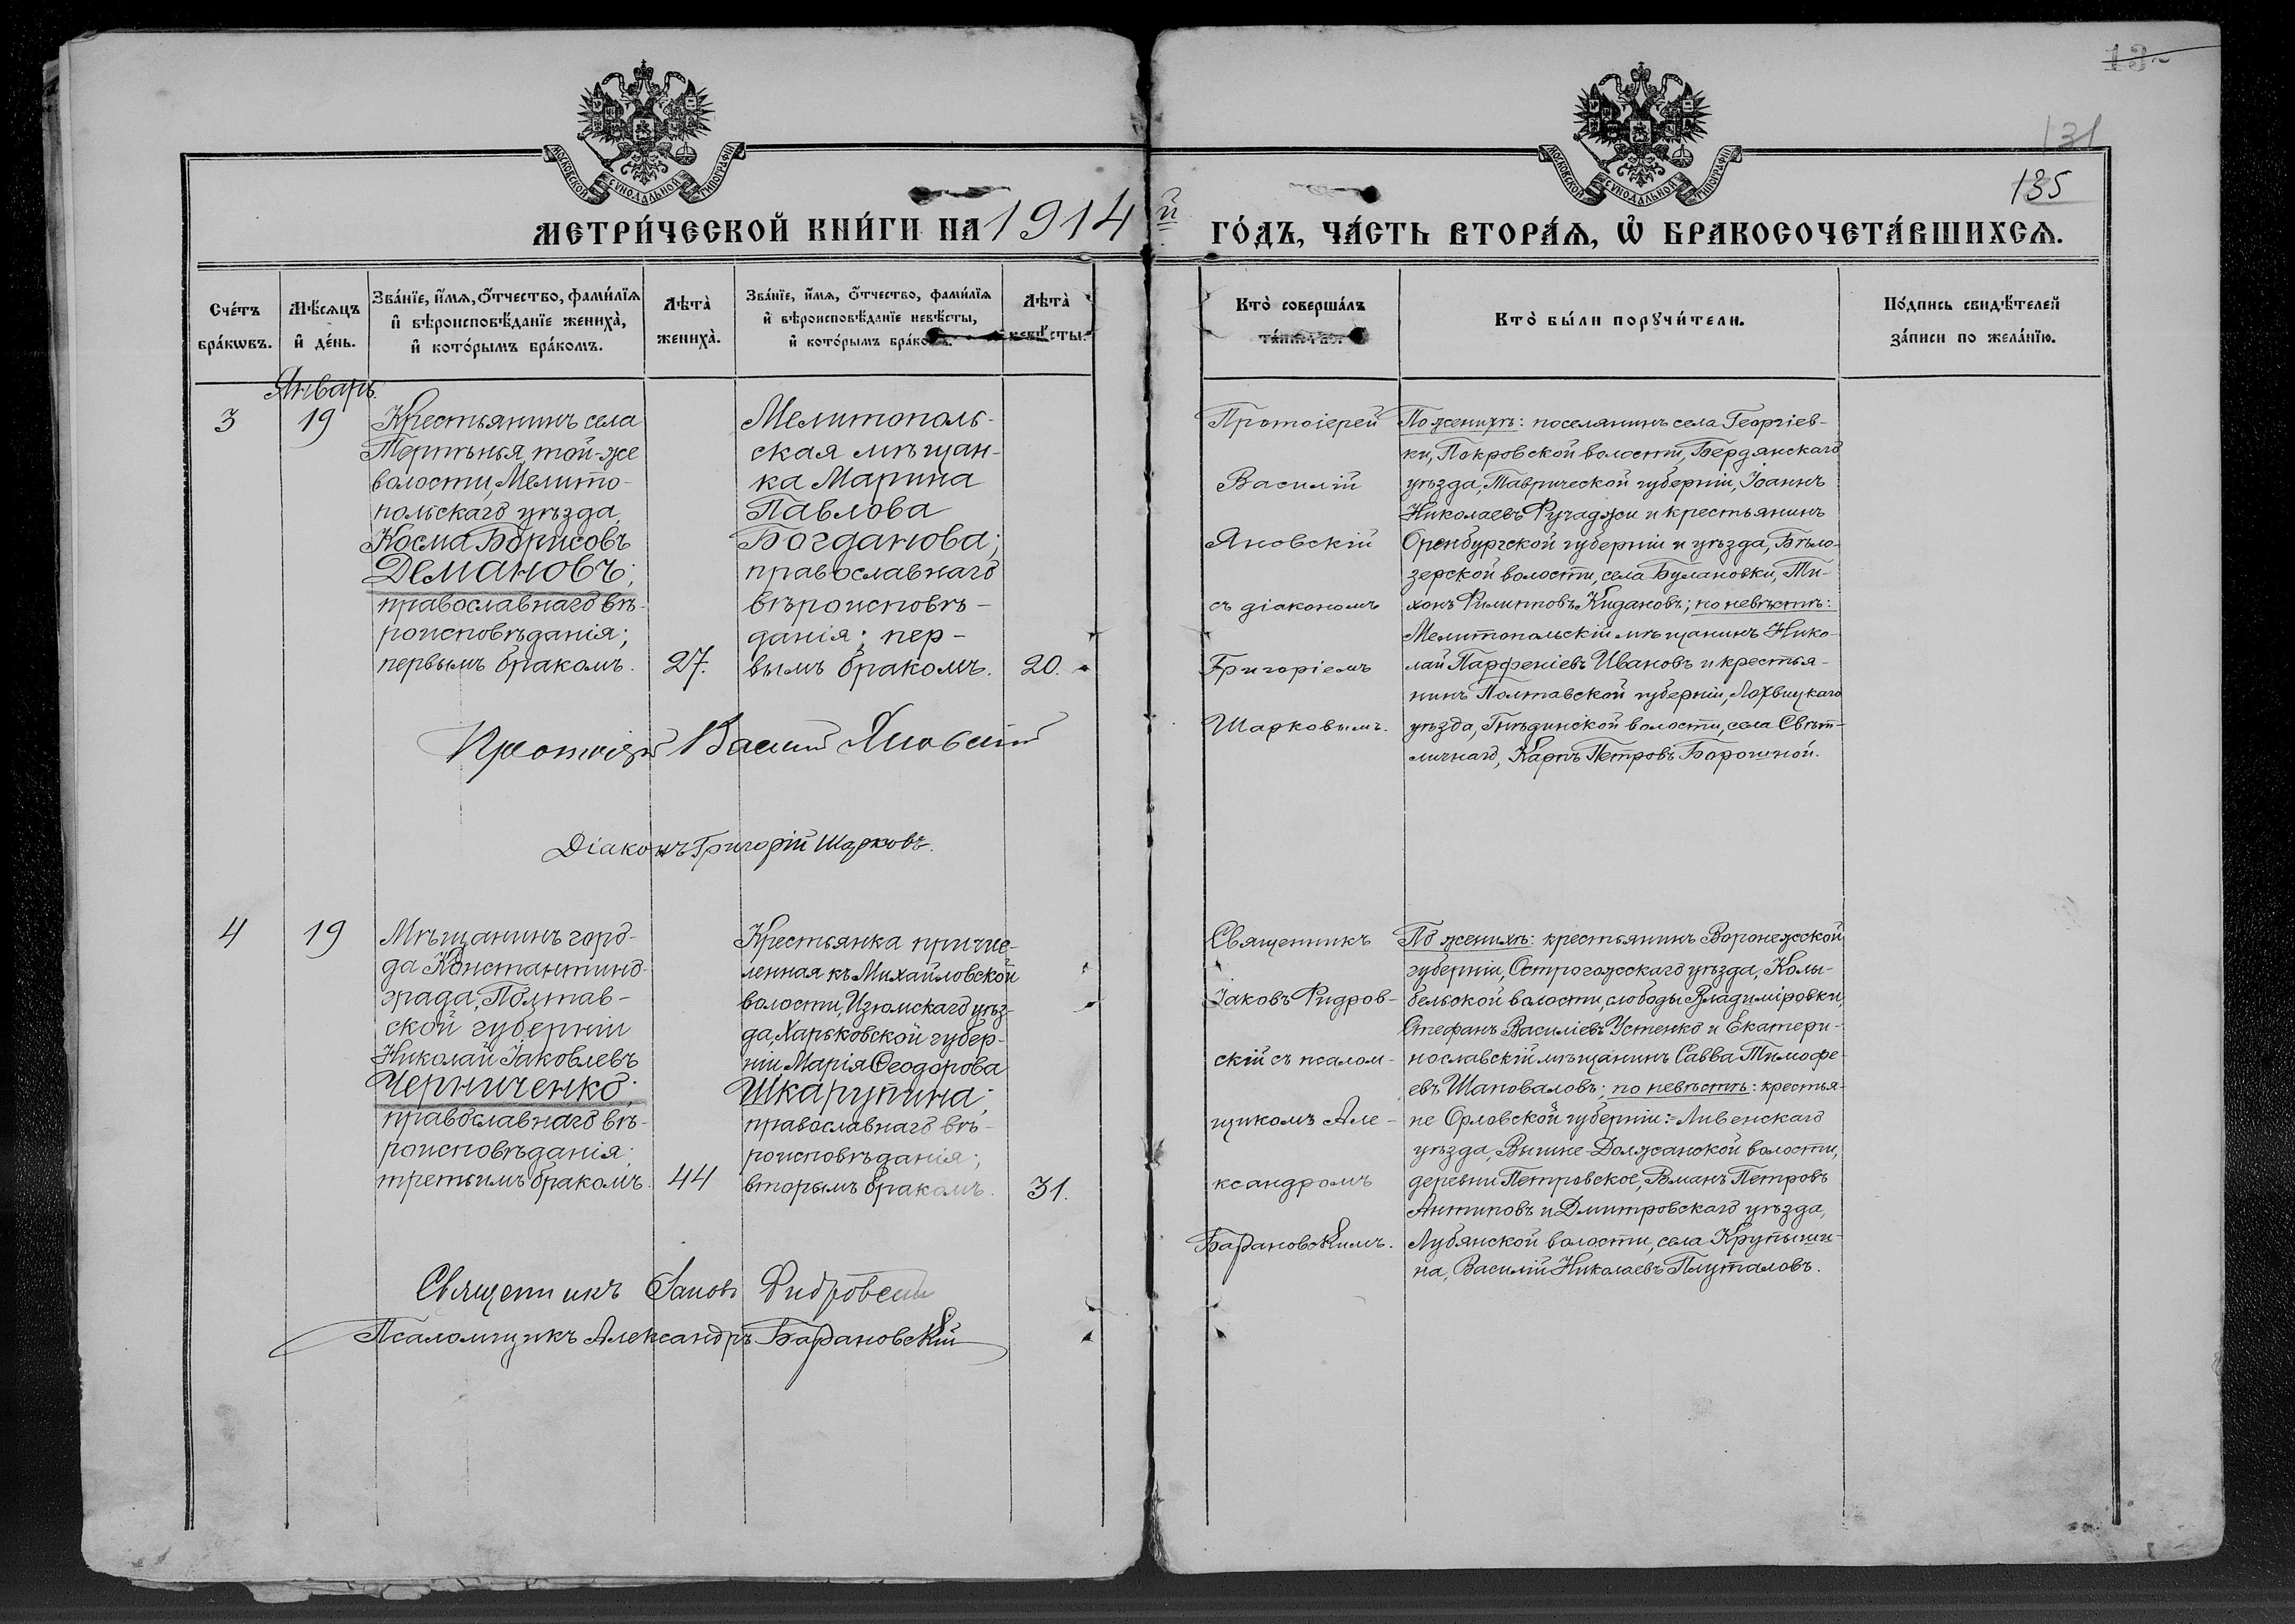 131
135
МОСКОВСКОЙ СѴНОДАЛЬНОЙ ТИПОГРАФІИ
МОСКОВСКОЙ СѴНОДАЛЬНОЙ ТИПОГРАФІИ
МЕТРИ́ЧЕСКОЙ КНИ́ГИ НА 1914й ГО́ДЪ, ЧА́СТЬ ВТОРА́Ѧ, Ѡ҆ БРАКОСОЧЕТА́ВШИХСѦ.
Сче́тъ
бра́кѡвъ.
Мѣ́сѧцъ
и҆ де́нь.
Зва́нїе, и҆́мѧ, о҆́тчество, фами́лїѧ
и҆ вѣроисповѣ́данїе жениха̀,
и҆ кото́рымъ бра́комъ.
Лѣта̀
жениха̀.
Зва́нїе, и҆́мѧ, о҆́тчество, фами́лїѧ
и҆ вѣроисповѣ́данїе невѣ́сты,
и҆ кото́рымъ бра́комъ.
Лѣта̀
невѣ́сты.
Кто̀ соверша́лъ
та́инство.
Кто̀ бы́ли порꙋчи́тели.
По́дпись свидѣ́телей
за́писи по жела́нїю.
Январь.
3
19
Крестьянинъ села
Терпѣнья, той-же
волости, Мелито-
польскаго уѣзда,
Косма Борисовъ
Демановъ;
православнаго вѣ-
роисповѣданія;
первымъ бракомъ.
27.
Мелитополь-
ская мѣщан-
ка Марина
Павлова
Богданова;
православнаго
вѣроисповѣ-
данія; пер-
вымъ бракомъ.
20.
Протоіерей
Василій
Яновскій
съ діакономъ
Григоріемъ
Шарковымъ.
По женихѣ: поселянинъ села Георгіев-
ки, Покровской волости, Бердянскаго
уѣзда, Таврической губерніи, Іоаннъ
Николаевъ Фучаджи и крестьянинъ
Оренбургской губерніи и уѣзда, Бѣло-
зерской волости, села Булановки, Ти-
хонъ Филипповъ Кидановъ; по невѣстѣ:
Мелитопольскій мѣщанинъ Нико-
лай Парфеніевъ Ивановъ и крестья-
нинъ Полтавской губерніи, Лохвицкаго
уѣзда, Гнѣдинской волости, села Свѣт-
личнаго, Карпъ Петровъ Борошной.
Протоіерей Василій Яновскій
Діаконъ Григорій Шарковъ.
4
19
Мѣщанинъ горо-
да Константино-
града, Полтав-
ской губерніи
Николай Іаковлевъ
Черниченко;
православнаго вѣ-
роисповѣданія;
третьимъ бракомъ.
44
Крестьянка причис-
ленная къ Михайловской
волости, Изюмскаго уѣз-
да, Харьковской губер-
ніи Марія Ѳеодорова
Шкарупина;
православнаго вѣ-
роисповѣданія;
вторымъ бракомъ.
31.
Священникъ
Іаковъ Фидров-
скій съ псалом-
щикомъ Але-
ксандромъ
Барановскимъ.
По женихѣ: крестьянинъ Воронежской
губерніи, Острогожскаго уѣзда, Колы-
бельской волости, слободы Владиміровки,
Стефанъ Василіевъ Устенко и Екатери-
нославскій мѣщанинъ Савва Тимофе-
евъ Шаповаловъ; по невѣстѣ: крестья-
не Орловской губерніи:- Ливенскаго
уѣзда, Вышне-Должанской волости,
деревни Петровское, Романъ Петровъ
Антиповъ и Дмитровскаго уѣзда,
Лубянской волости, села Крупыши-
на, Василій Николаевъ Плуталовъ.
Священникъ Іаковъ Фидровскій
Псаломщикъ Александръ Барановскій